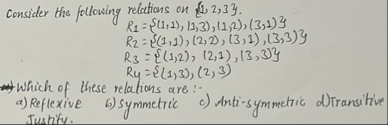 Consider the following relations on {1,2,3}.
R1 = {(1,1), (1,3), (1,2), (3,1)}
R2 = {(1,1), (2,2), (3,1), (3,3)}
R3 = {(1,2), (2,1), (3,3)}
R4 = {(1,3), (2,3)
a) Which of these relations are :-
a) Reflexive b) Symmetric c) Anti-symmetric d) Transitive
Justify.